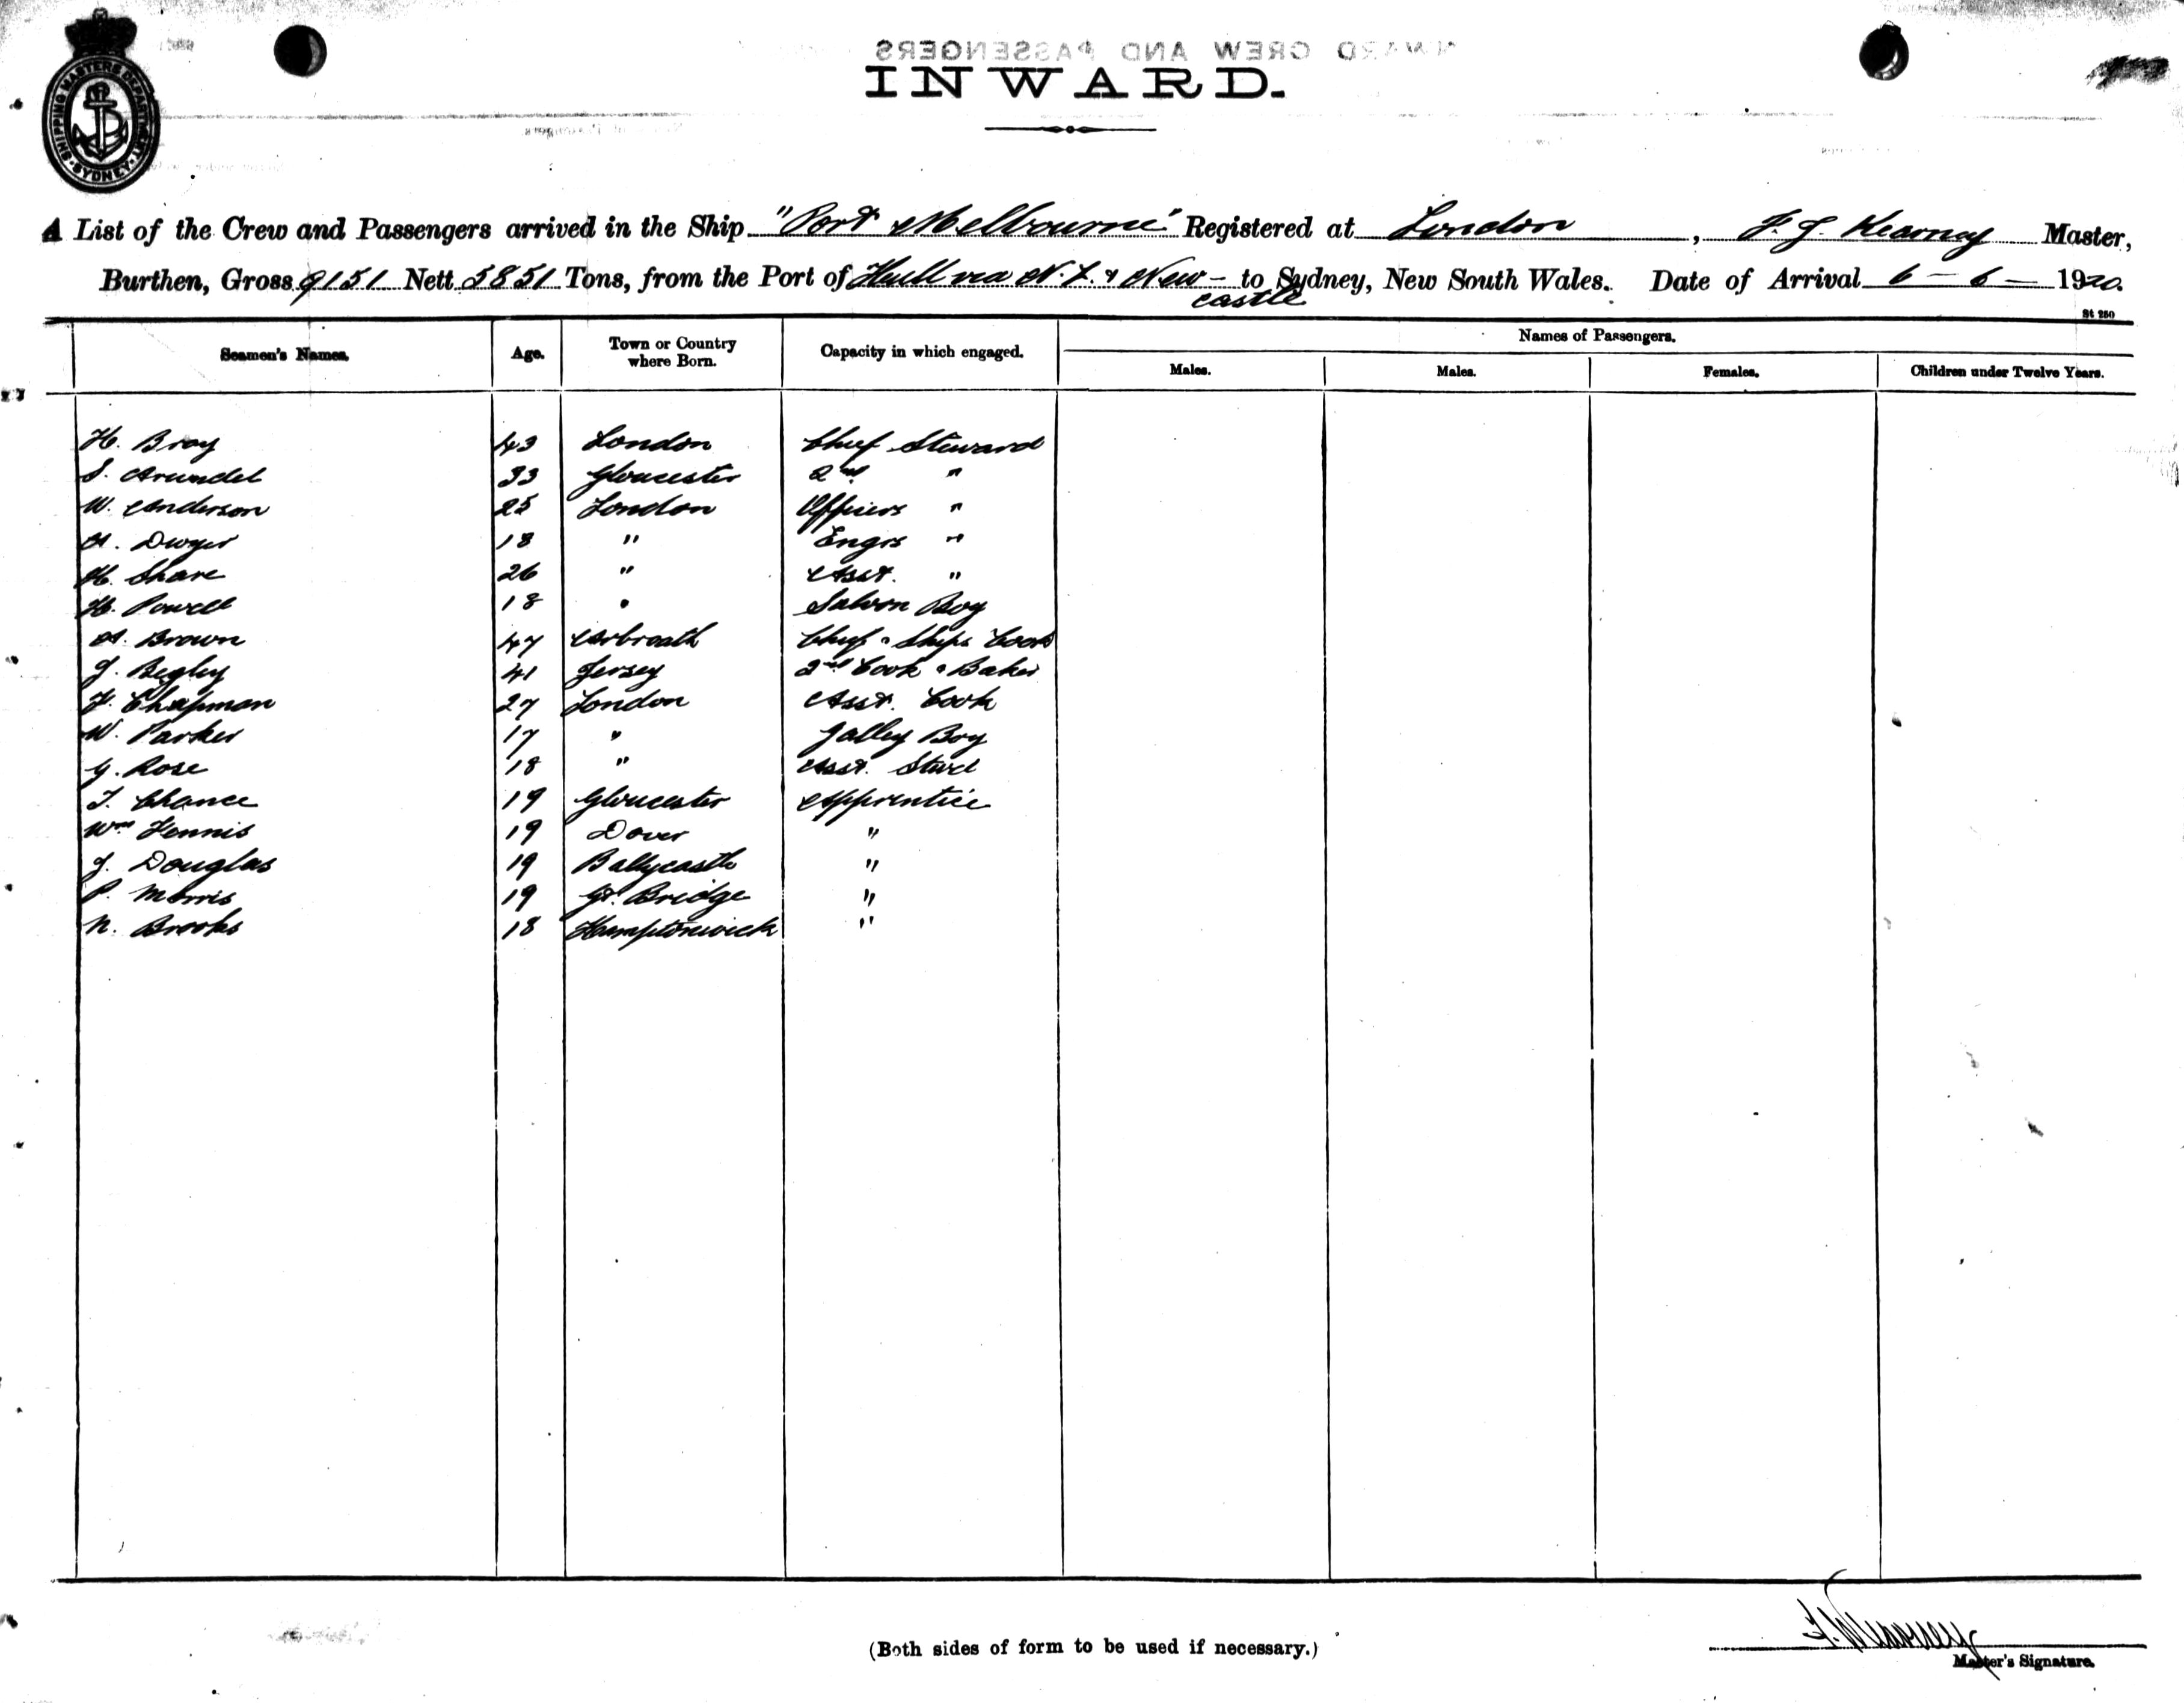 SHIPPING MASTERS DEPARTMENT SYDNEY
INWARD CREW AND PASSENGERS
INWARD.
A List of the Crew and Passengers arrived in the Ship "Port Melbourne" Registered at London, F. J. Kearney Master,
Burthen, Gross 9151 Nett 5851 Tons, from the Port of Hull via N.Z. & New-castle to Sydney, New South Wales. Date of Arrival 6 – 6 – 1920.
St 250
Seamen's Names. Age. Town or Country where Born. Capacity in which engaged. Names of Passengers.
Males. Males. Females. Children under Twelve Years.
H. Bray 43 London Chief Steward
S. Arundel 33 Gloucester 2nd "
W. Anderson 25 London Officers "
A. Dwyer 18 " Engrs "
H. Share 26 " Asst. "
H. Powell 18 " Saloon Boy
A. Brown 47 Arbroath Chief & Ships Cook
J. Begley 41 Jersey 2nd Cook & Baker
F. Chapman 27 London Asst. Cook
W. Parker 17 " Galley Boy
G. Rose 18 " Asst. Stwd
T. Chance 19 Gloucester Apprentice
Wm Fennis 19 Dover "
J. Douglas 19 Ballycastle "
P. Morris 19 Gt. Bridge "
N. Brooks 18 Hamptonwick "
(Both sides of form to be used if necessary.)
Master's Signature.